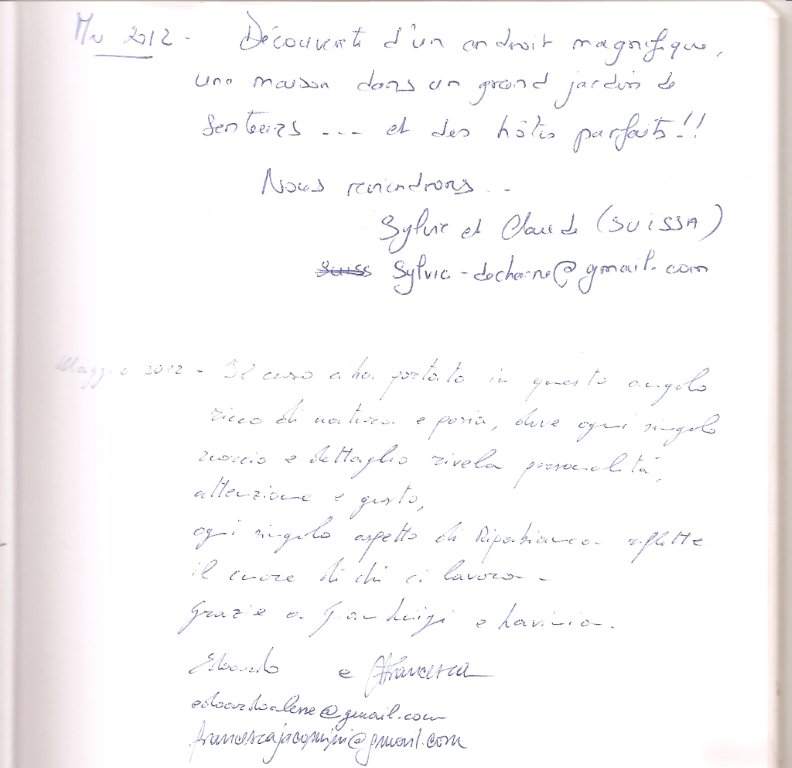 Mai 2012 - Découverte d'un endroit magnifique,
une maison dans un grand jardin de
senteurs --- et des hôtes parfaits!!
Nous reviendrons...
Sylvie et Claude (SUISSA)
Suiss Sylvie-dechaine@gmail.com
Maggio 2012 - Il caso ci ha portato in questo angolo
ricco di natura e poesia, dove ogni singolo
scorcio e dettaglio rivela personalità,
attenzione e gusto,
ogni singolo aspetto di Ripabianca riflette
il cuore di chi ci lavora -
Grazie a Gianluigi e Lavinia.
Edoardo e Francesca
edoardoalese@gmail.com
francescajacomini@gmail.com